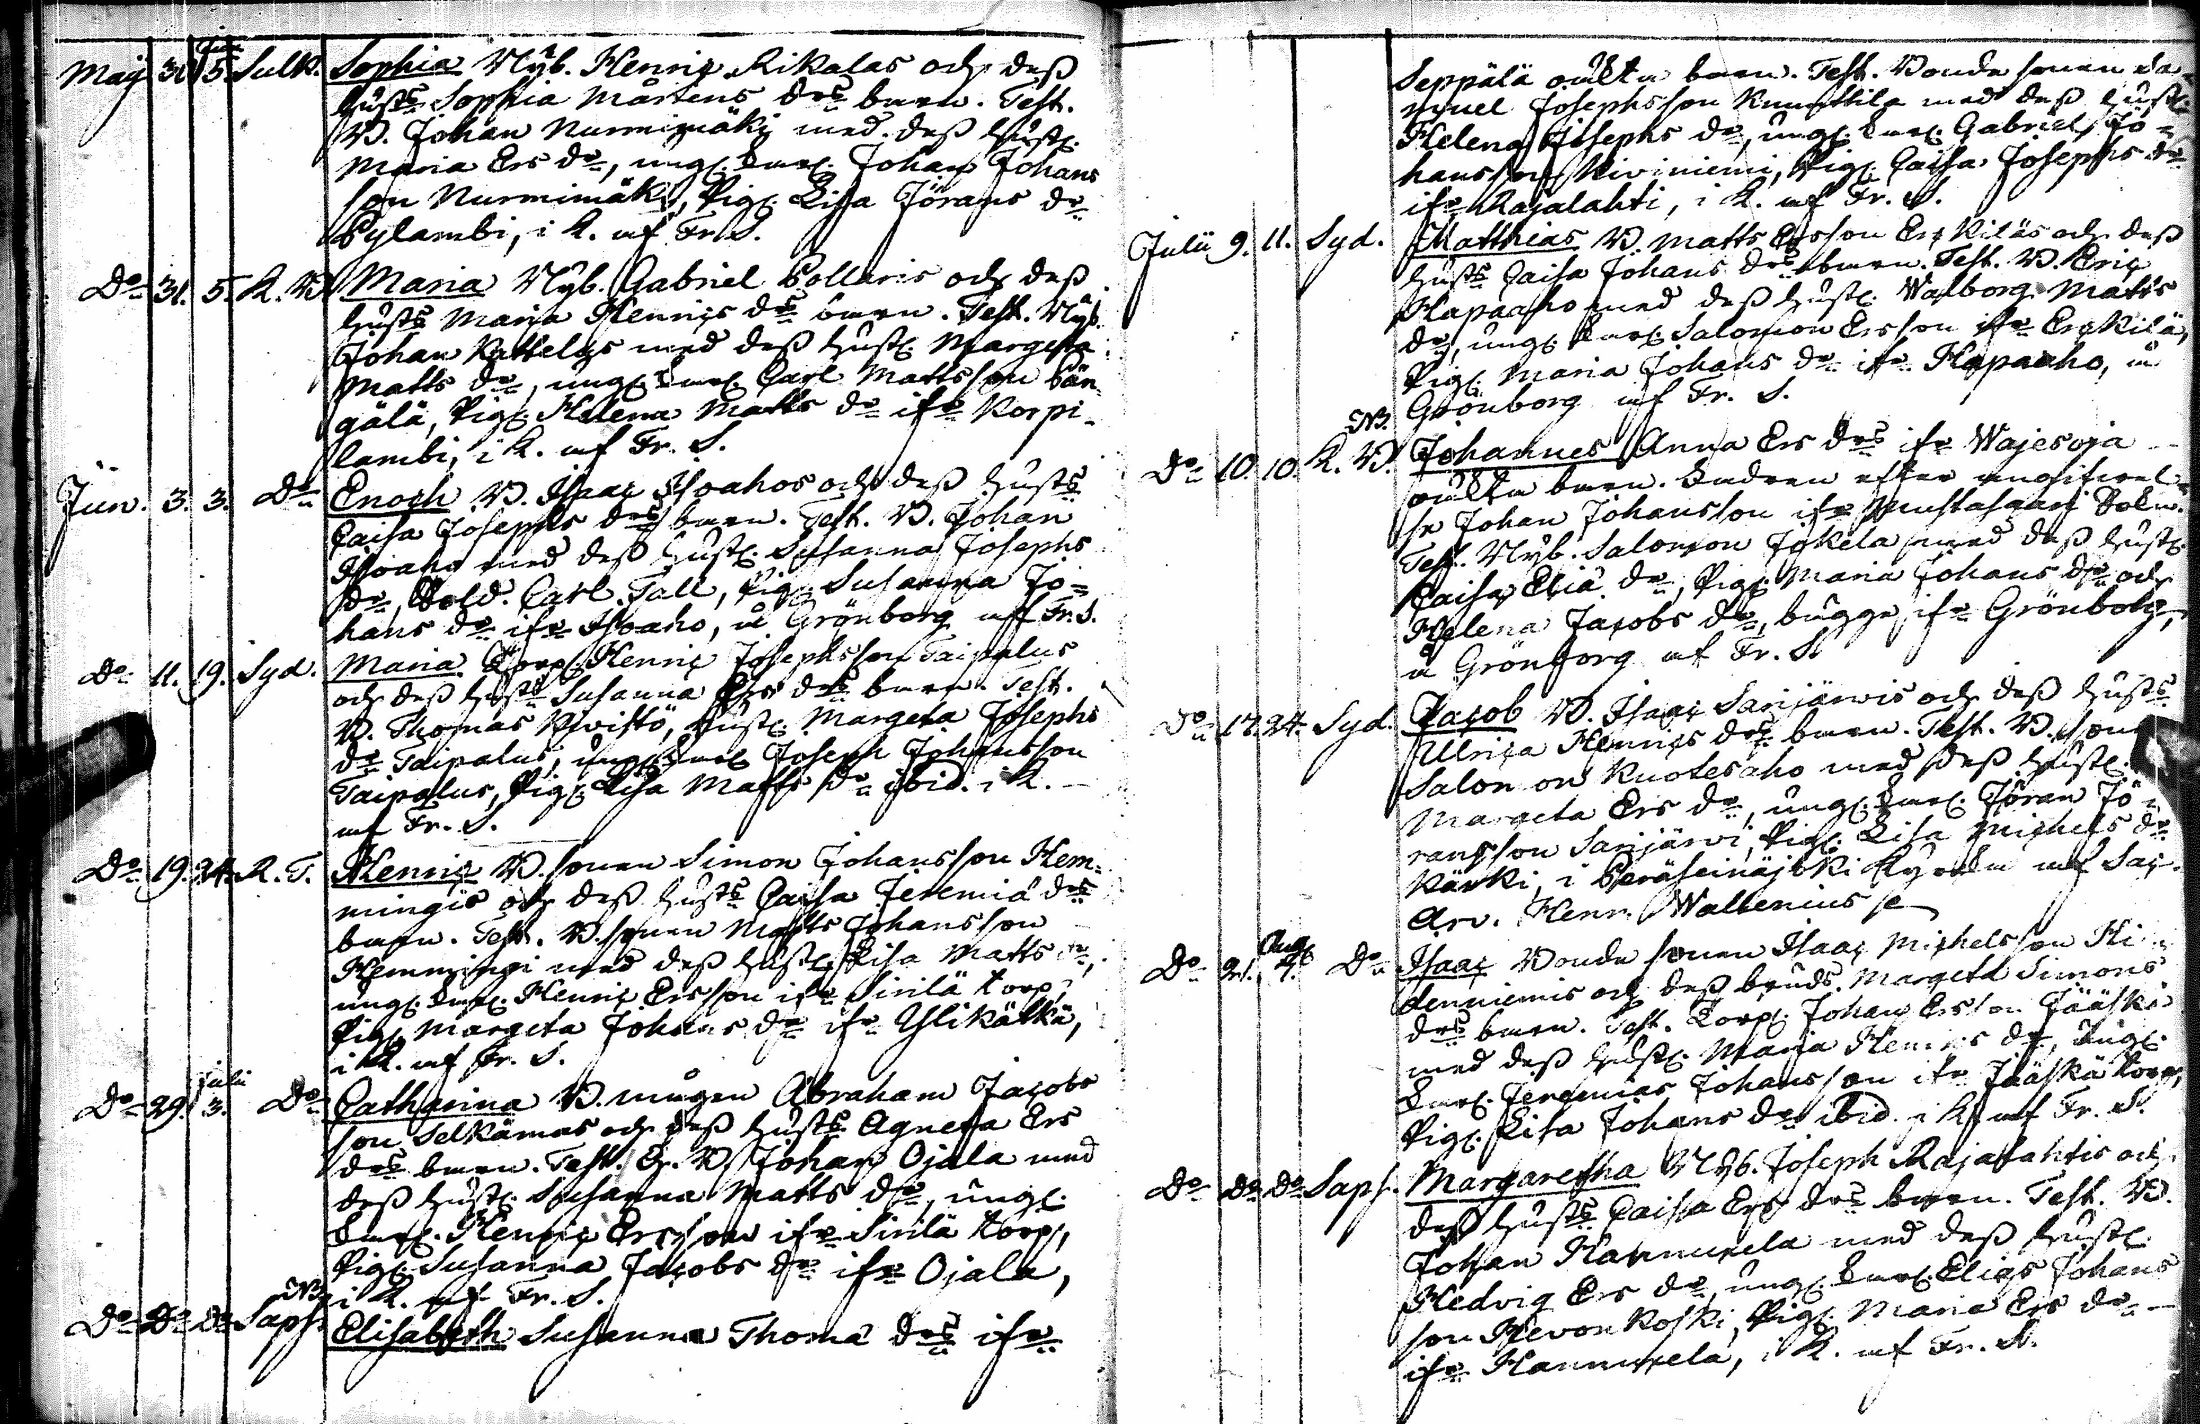 Maij 31. Jun. 5. Sulk. Sophia Nyb. Henric Rikalas och dess
hust:s Sophia Mårtens d:rs barn. Test.
B. Johan Nurmimäki med dess hust.
Maria Ers d:r, ungk. Dr. Johan Johans
son Nurmimäki, Pig. Lisa Jörans d:r
Pylambi, i K. af Fr. S.
D:o 31. 5. K. B. Maria Nyb. Gabriel Pollaris och dess
hust:s Maria Henrics d:rs barn. Test. Nyb.
Johan Kattelus med dess hust. Margeta
Matts d:r, ungk. Carl Mattsson Pän-
gälä, Pig. Helena Matts d:r ifr. Korpi-
lambi, i K. af Fr. S.
Jun. 3. 3. D:o Enoch B. Isaac Isoahos och dess hust:s
Caisa Josephs d:rs barn. Test. B. Johan
Isoaho med dess hust. Susanna Josephs
d:r, Sold. Carl Tall, Pig. Susanna Jo-
hans d:r ifr. Isoaho, å Grönborg af Fr. S.
D:o 11. 19. Syd. Maria Torp. Henric Josephsson Taipalus
och dess hust:s Susanna Ers d:rs barn. Test.
B. Thomas Kvistö, hust. Margeta Josephs
d:r Taipalus, ungk. Joseph Johansson
Taipalus, Pig. Lisa Matts d:r ibid. i K.
af Fr. S.
D:o 19. 24. K. T. Henric B. sonen Simon Johansson Hem-
mingis och dess hust:s Caisa Jeremiæ d:rs
barn. Test. B. sonen Matts Johansson
Hemmingi med dess hust. Lisa Matts d:r,
ungk. Henric Ersson ifr. Sirilä torp,
Pig. Margeta Johans d:r ifr. Ylikätkä,
i K. af Fr. S.
D:o 29. Julii 3. D:o Catharina B. mågen Abraham Jacobs
son Selkämas och dess hust:s Agneta Ers
d:rs barn. Test. B. Johan Ojala med
dess hust. Susanna Matts d:r, ungk.
Henric Ersson ifr. Sirilä torp,
Pig. Susanna Jacobs d:r ifr. Ojala,
i K. af Fr. S.
D:o D:o D:o Saps. NB. Elisabeth Susanna Thomæ d:rs ifr.
Seppälä oäkta barn. Test. Bonde sonen Sa-
muel Josephsson Knuuttila med dess hust.
Helena Josephs d:r, ungk. Gabriel Jo-
hansson Kiviniemi, Pig. Caisa Josephs d:r
ifr. Rajalahti, i K. af Fr. S.
Julii 9. 11. Syd. Matthias B. Matts Ersson Erckiläs och dess
hust:s Caisa Johans d:rs barn. Test. B. Eric
Hapaaho med dess hust. Walborg Matts
d:r, ungk. Salomon Ersson ifr. Erckilä,
Pig. Maria Johans d:r ifr. Hapaaho, å
Grönborg af Fr. S.
D:o 10. 10. K. B. NB. Johannes Anna Ers d:rs ifr. Wajesoja
oäkta barn. Fadren efter angifwel-
se Johan Johansson ifr. Mustasaari Sokn.
Test. Nyb. Salomon Jokela med dess hust.
Caisa Eliæ d:r, Pig. Maria Johans d:r och
Helena Jacobs d:r, bägge ifr. Grönborg,
å Grönborg af Fr. S.
D:o 17. 24. Syd. Jacob B. Isaac Sarijärwis och dess hust:s
Ulrica Henrics d:rs barn. Test. B. son
Salomon Kuotesaho med dess hust.
Margeta Ers d:r, ungk. Jöran Jö-
ransson Sarijärwi, Pig. Lisa Michels d:r
Kärki, i Peräseinäjoki Kyrka af Sac.
Arv. Henr. Wallenius
D:o 21. Aug. 4. D:o Isaac Bonde sonen Isaac Michelsson Hi-
denniemis och dess bruds Margeta Simons
d:rs barn. Test. Torp. Johan Ersson Jääskä
med dess hust. Maria Henrics d:r, ungk.
Jeremias Johansson ifr. Jääskä torp,
Pig. Lisa Johans d:r ibid. i K. af Fr. S.
D:o D:o D:o Saps. Margaretha Nyb. Joseph Rajalahtis och
dess hust:s Caisa Ers d:rs barn. Test. B.
Johan Hannuxela med dess hust.
Hedvig Ers d:r, ungk. Elias Johans
son Hevonkoski, Pig. Maria Ers d:r
ifr. Hannuxela, i K. af Fr. S.